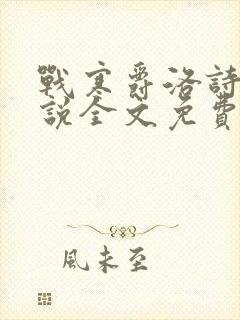 戰寒爵洛詩
說全文免費
風未至